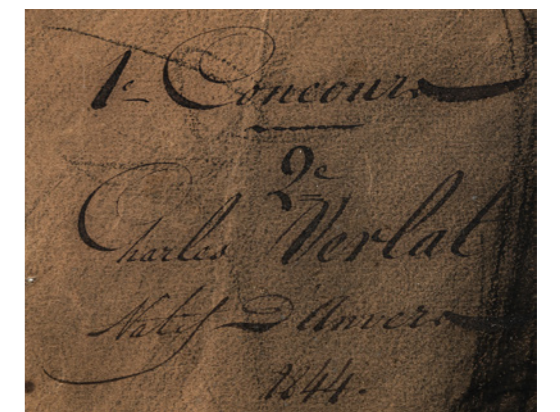 1e Concours
2e
Charles Verlat
Natif D'Anvers
1844.